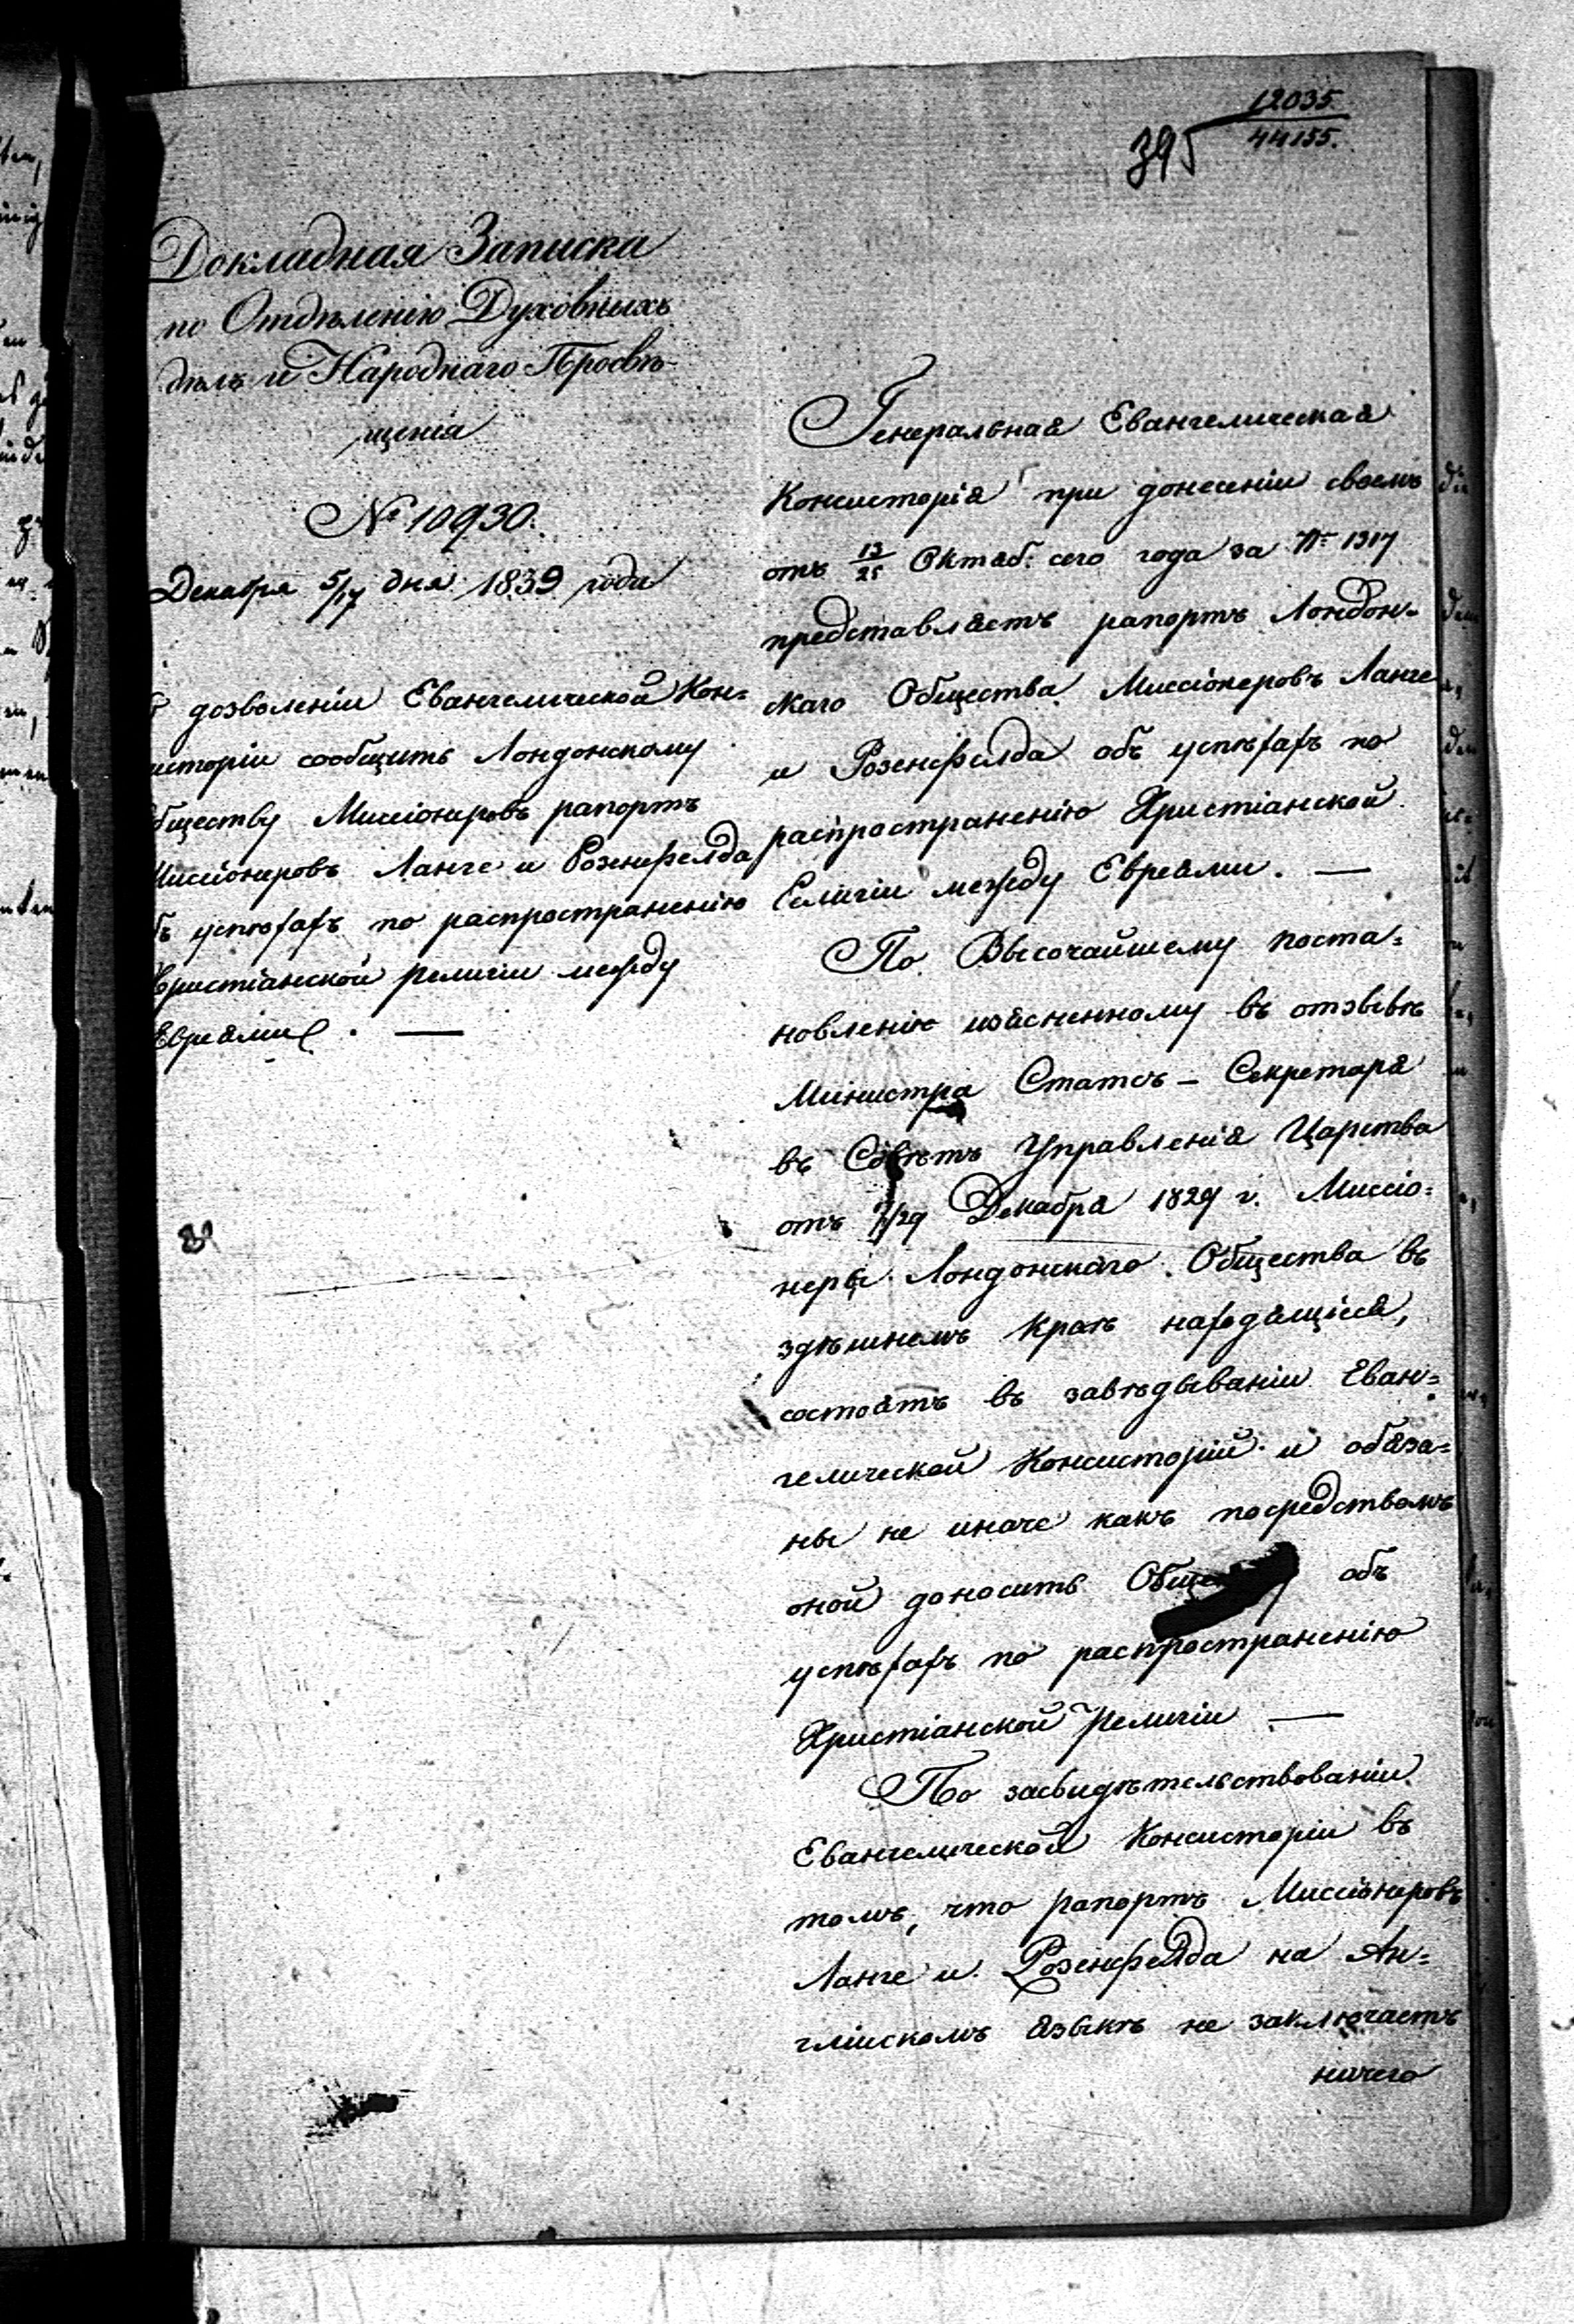 12035
44155.
395
Докладная Записка
по Отдѣленію Духовныхъ
дѣлъ и Народнаго Просвѣ-
щенія
№ 10930.
Декабря 5/17 дня 1839 года
дозволеніи Евангелической Кон=
систоріи сообщить Лондонскому
Обществу Миссіонеровъ рапортъ
Миссіонеровъ Ланге и Розенфелда
объ успѣхахъ по распространенію
Христіанской религіи между
Евреями. —
Генеральная Евангелическая
Консисторія при донесеніи своемъ
отъ 13/25 Октяб. сего года за № 1317
представляетъ рапортъ Лондон-
скаго Общества Миссіонеровъ Ланге
и Розенфелда объ успѣхахъ по
распространенію Христіанской
Религіи между Евреями. —
По Высочайшему поста=
новленію изъясненному въ отзывѣ
Министра Статсъ-Секретаря
въ Совѣтъ Управленія Царства
отъ /29 Декабря 1829 г. Миссіо=
неры Лондонскаго Общества въ
здѣшнемъ краѣ находящіеся,
состоятъ въ завѣдываніи Еван=
гелической Консисторіи и обяза=
ны не иначе какъ посредствомъ
оной доносить Обществу объ
успѣхахъ по распространенію
Христіанской Религіи —
По засвидѣтельствованіи
Евангелической Консисторіи въ
томъ, что рапортъ Миссіонеровъ
Ланге и Розенфелда на Ан=
глійскомъ языкѣ не заключаетъ
ничего